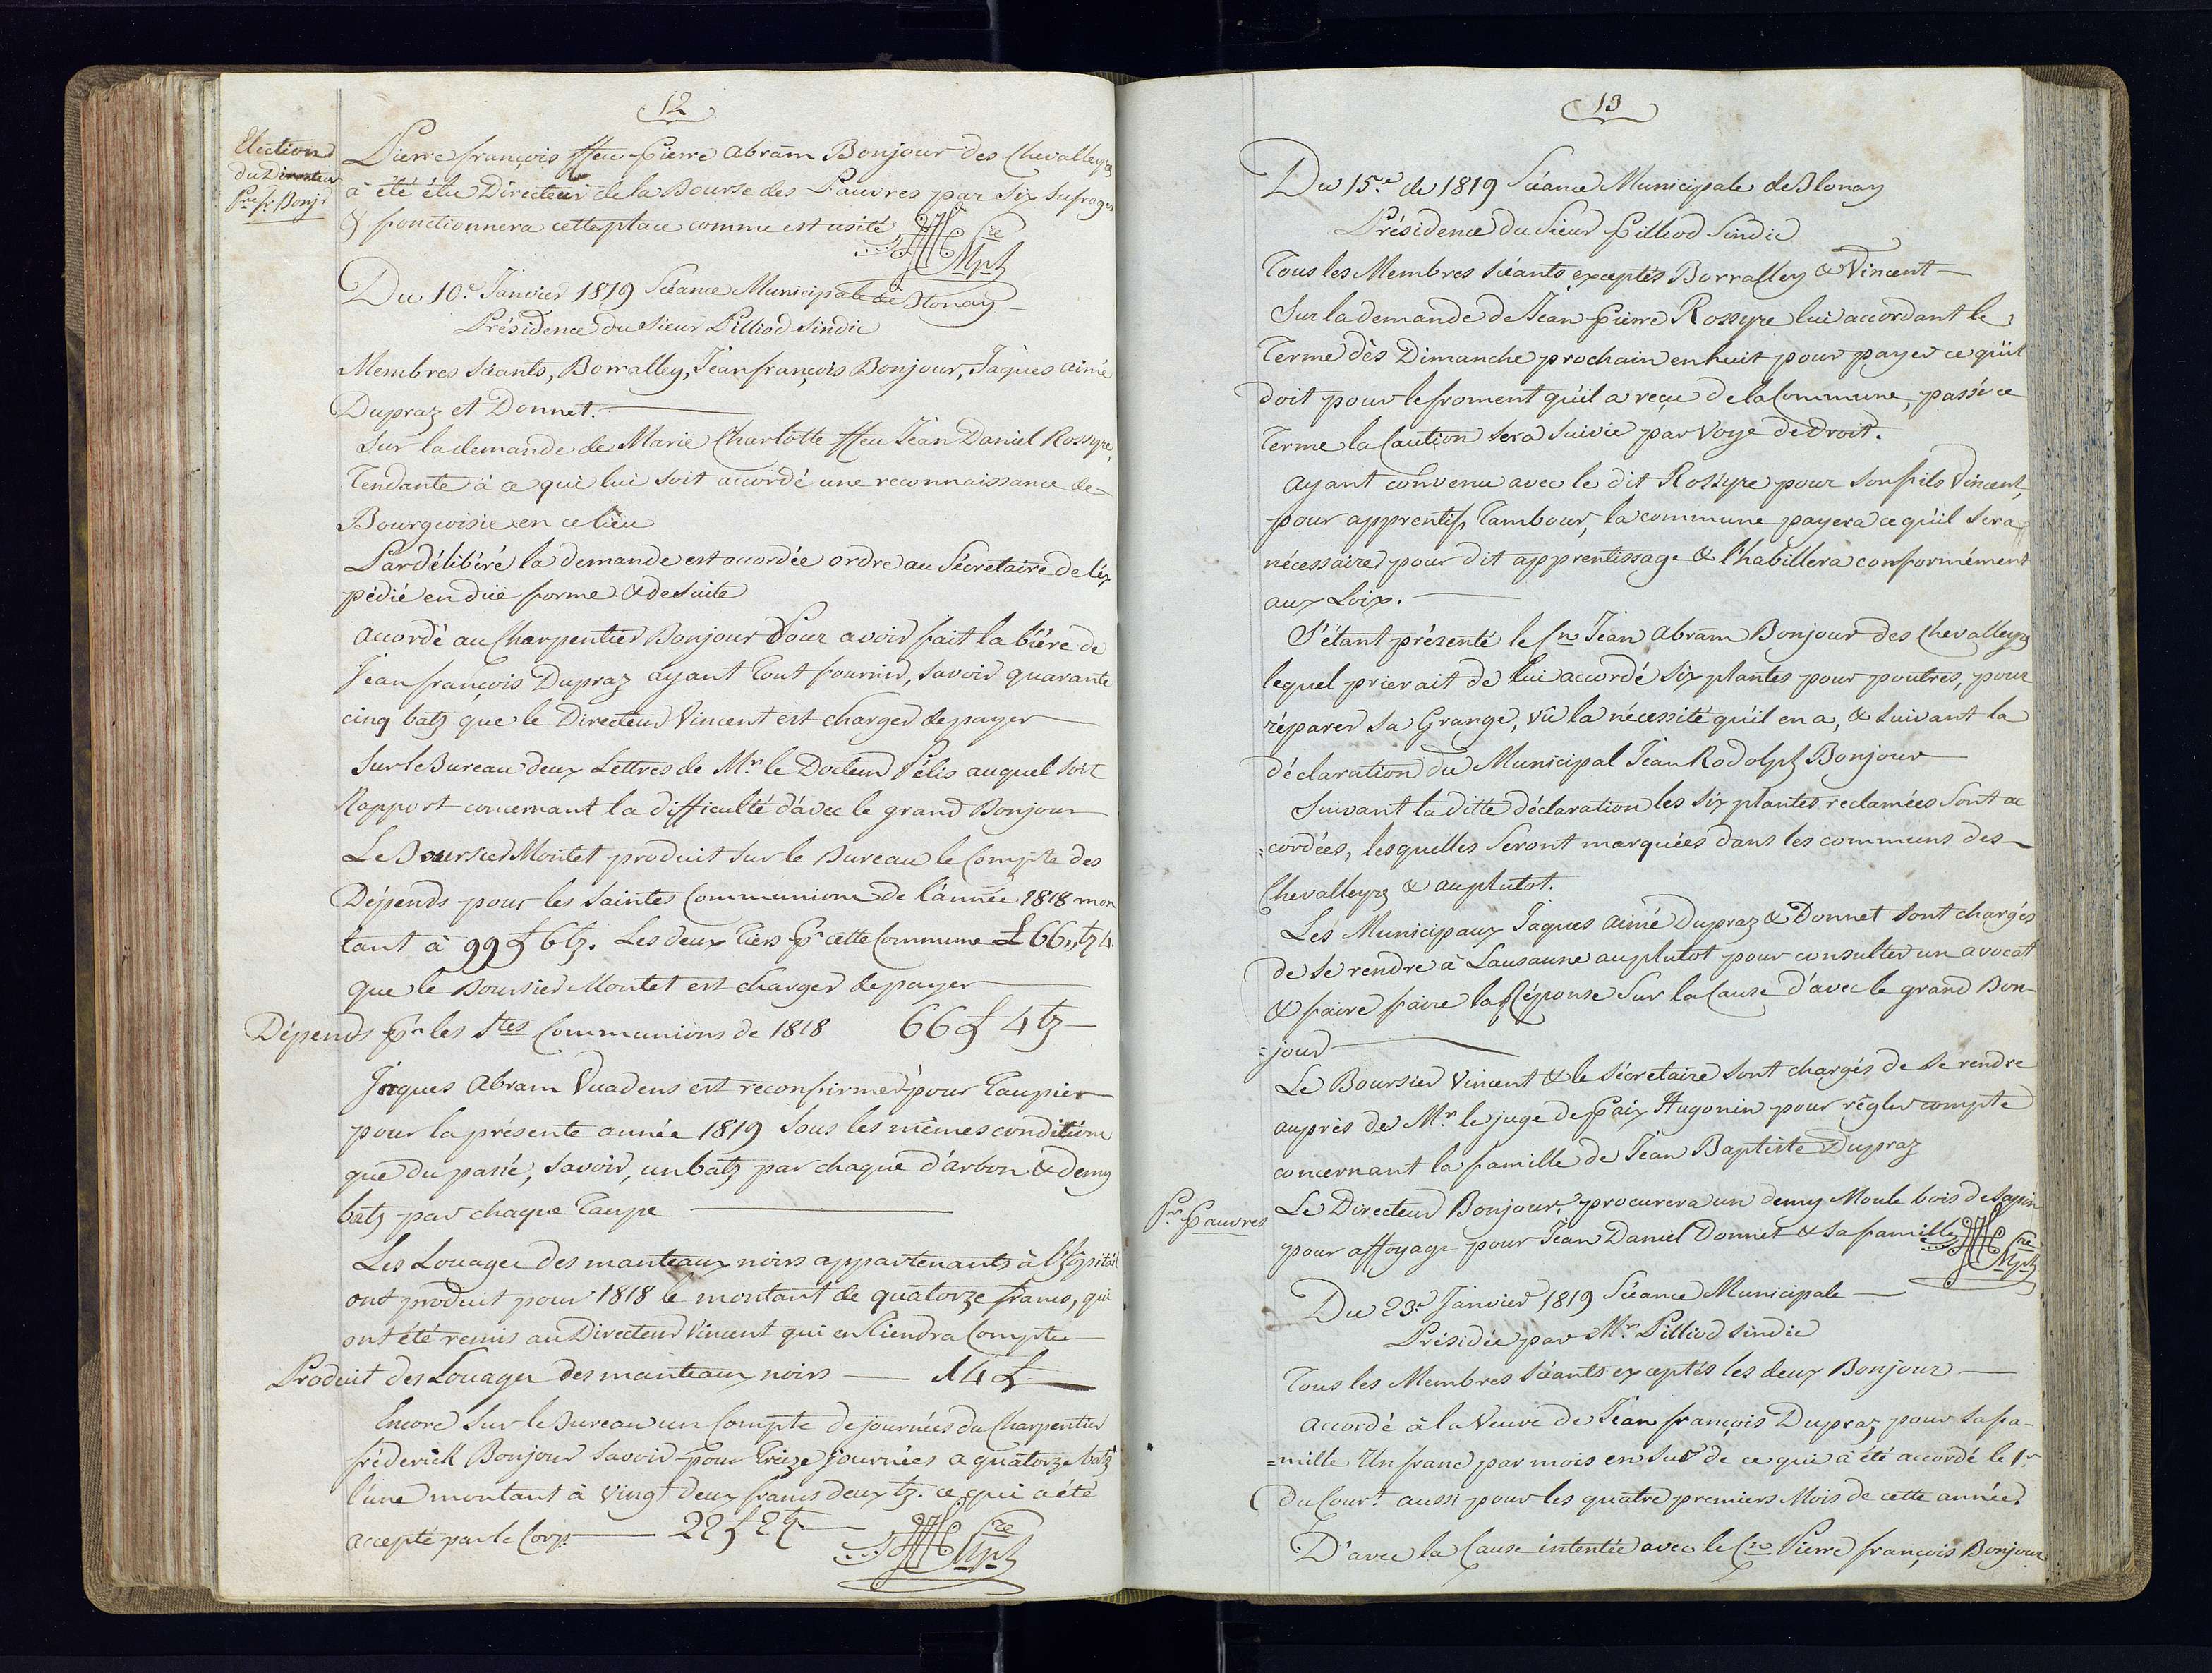 12
Election
du Directeur
Pre fs Bonjr
Pierre françois ffeu Pierre Abram Bonjour des Chevalleyrs
à été élu Directeur de la Bourse des Pauvres par Six Sufrages
& fonctionnera cette place comme est usité
Du 10e Janvier 1819 Séance Municipale de Blonay
Présidence du Sieur Pilliod Sindic
Membres Séants, Borralley, Jean françois Bonjour, Jaques aimé
Dupraz et Donnet.
Sur la demande de Marie Charlotte ffeu Jean Daniel Rossyre,
Tendante à ce qui lui soit accordé une reconnaissance de
Bourgeoisie en ce lieu
Par délibéré la demande est accordée ordre au Sécretaire de l'éx
pédié en düe forme & de suite
accordé au Charpentier Bonjour Pour avoir fait la bière de
Jean françois Dupraz ayant tout fournir, savoir quarante
cinq batz que le Directeur Vincent est charger de payer
Sur le Bureau deux Lettres de Mr le Docteur Pélis auquel soit
Rapport concernant la difficulté d'avec le grand Bonjour
Le Boursier Montet produit sur le Bureau le Compte des
Dépends pour les Saintes Communions de l'année 1818 mon
tant à 99 £ 6 bz. Les deux Tiers pr cette Commune £ 66 ,, bz 4.
que le Boursier Montet est charger de payer
Dépends pr les Stes Communions de 1818 66 £ 4 bz
Jaques Abram Vuadens est reconfirmer pour Taupier
pour la présente année 1819 Sous les mêmes conditions
que du passé, savoir, un batz par chaque d'arbon & demy
batz par chaque Taupe
Les Louages des manteaux noirs appartenants à l'hôpital
ont produit pour 1818 le montant de quatorze francs, qui
ont été remis au Directeur Vincent qui en tiendra Compte
Produit des Louages des manteaux noirs 14 £
Encore Sur le Bureau un Compte de journées du Charpentier
fréderick Bonjour Savoir pour treize journées a quatorze batz
l'une montant à vingt deux francs deux bz. ce qui a été
accepté par le Corps 22 £ 2 bz
13
Du 15e de 1819 Séance Municipale de Blonay
Présidence du Sieur Pilliod Sindic
Tous les Membres Séants exceptés Borralley & Vincent
Sur la demande de Jean Pierre Rossyre lui accordant le
Terme dès Dimanche prochain en huit pour payer ce qu'il
doit pour le froment qu'il a reçu de la Commune, passé ce
Terme la Caution sera suivie par Voye de droit.
Ayant convenu avec le dit Rossyre pour son fils Vincent,
pour apprentif Tambour, la commune payera ce qu'il sera
nécessaire pour dit apprentissage & l'habillera conformément
aux Loix.
S'étant présenté le Cn Jean Abram Bonjour des Chevalleyrs
lequel prierait de lui accordé six plantes pour poutres, pour
réparer sa Grange, vû la nécessité qu'il en a, & suivant la
déclaration du Municipal Jean Rodolph Bonjour
Suivant la ditte déclaration les six plantes reclamées sont ac
=cordées, lesquelles seront marquées dans les communs des
Chevalleyrs & au plutot.
Les Municipaux Jaques aimé Dupraz & Donnet sont chargés
de se rendre à Lausanne au plutot pour consulter un avocat
& faire faire la Réponse Sur la Cause d'avec le grand Bon-
=jour
Le Boursier Vincent & le Sécretaire sont chargés de se rendre
auprès de Mr le juge de Paix Hugonin pour règler compte
concernant la famille de Jean Baptiste Dupraz
Pr Pauvres
Le Directeur Bonjour, procurera un demy Moule bois de sapin
pour affoyage pour Jean Daniel Donnet & sa famille
Du 23e Janvier 1819 Séance Municipale
Présidée par Mr Pilliod Sindic
Tous les Membres Séants exceptés les deux Bonjour
accordé à la Veuve de Jean françois Dupraz pour sa fa-
=mille Un franc par mois en sus de ce qui à été accordé le 1r
du Court aussi pour les quatre premiers Mois de cette année.
D'avec la Cause intentée avec le Cn Pierre françois Bonjour